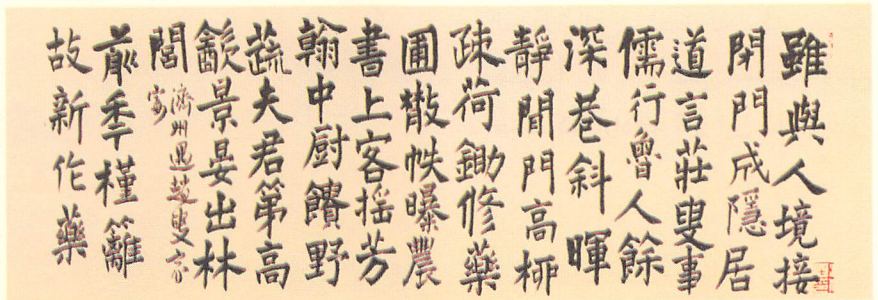 雖與人境接
閉門成隱居
道言莊叟事
儒行魯人餘
深巷斜暉
靜閒門高柳
疎荷鋤修藥
圃散帙曝農
書上客搖芳
翰中厨饋野
蔬夫君第高
㱃景晏出林
閭
濟州過趙叟家
宴
前秊槿籬
故新作藥